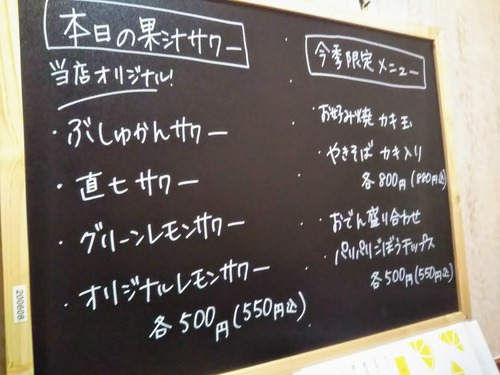 本日の果汁サワー
当店オリジナル!
・ぶしゅかんサワー
・直七サワー
・グリーンレモンサワー
・オリジナルレモンサワー
各500円(550円込)
今季限定メニュー
・お好み焼 カキ玉
・やきそば カキ入り
各800円(880円込)
・おでん盛り合わせ
・パリパリごぼうチップス
各500円(550円込)
200608